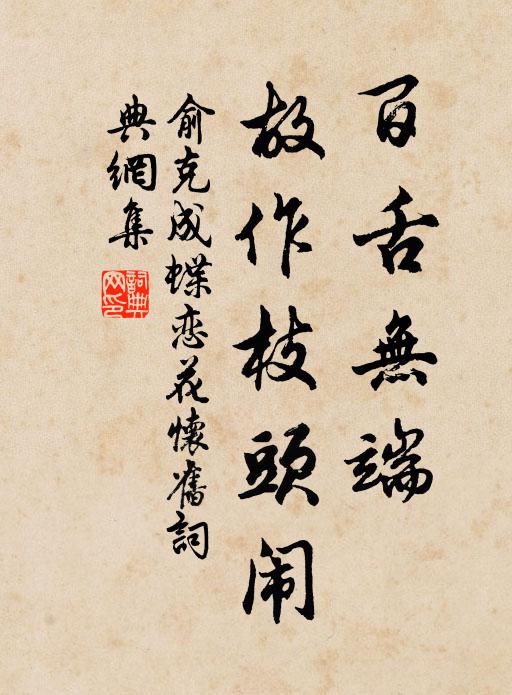 百舌無端
故作枝頭闹
俞克成蝶恋花懷舊詞
典網集
詞典
网印